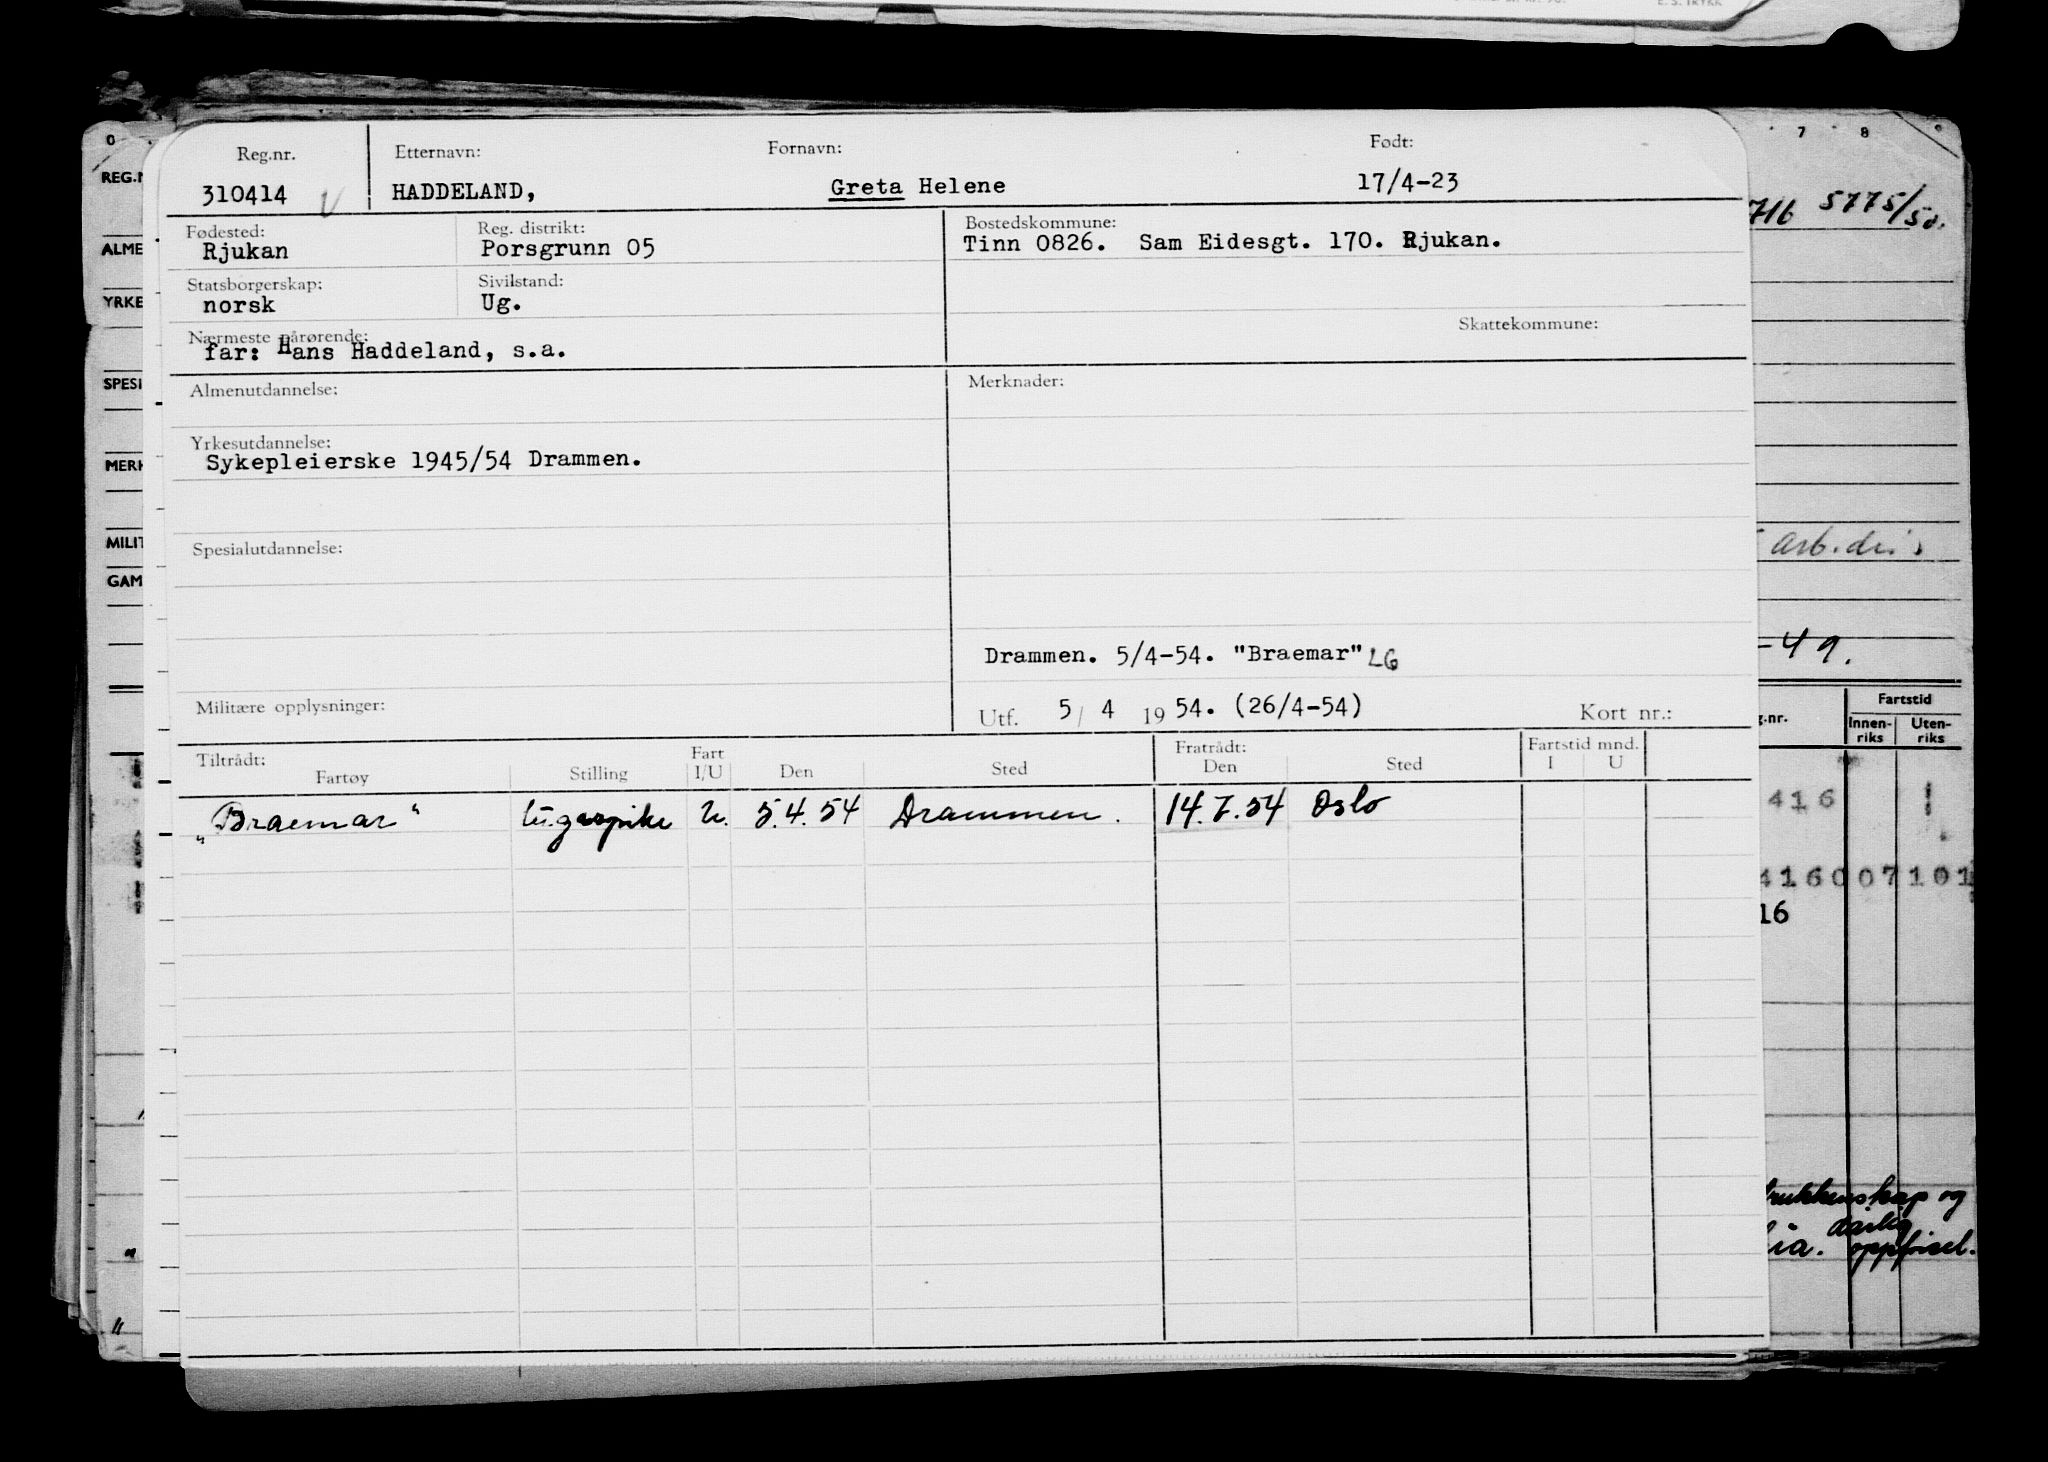 E. S. TRYKK
0 7 8 9
Reg.nr. Etternavn: Fornavn: Født:
310414 V HADDELAND, Greta Helene 17/4-23
REG.N 716 5775/50.
Fødested: Reg. distrikt: Bostedskommune:
Rjukan Porsgrunn 05 Tinn 0826. Sam Eidesgt. 170. Rjukan.
ALME
Statsborgerskap: Sivilstand:
norsk Ug.
YRKE
Nærmeste pårørende: Skattekommune:
far: Hans Haddeland, s.a.
SPESI
Almenutdannelse: Merknader:
Yrkesutdannelse:
Sykepleierske 1945/54 Drammen.
MERK
Spesialutdannelse:
MILIT arb.
GAM
Drammen. 5/4-54. "Braemar" LG
-49.
Militære opplysninger: Utf. 5/ 4 19 54. (26/4-54) Kort nr.:
g.nr. Fartstid
Innen-riks Uten-riks
Tiltrådt: Fart Fratrådt: Fartstid mnd.
Fartøy Stilling I/U Den Sted Den Sted I U
„Braemar“ U. 5.4.54 Drammen. 14.7.54 Oslo
416 1
416007101
16
og
dårlig
oppførsel.